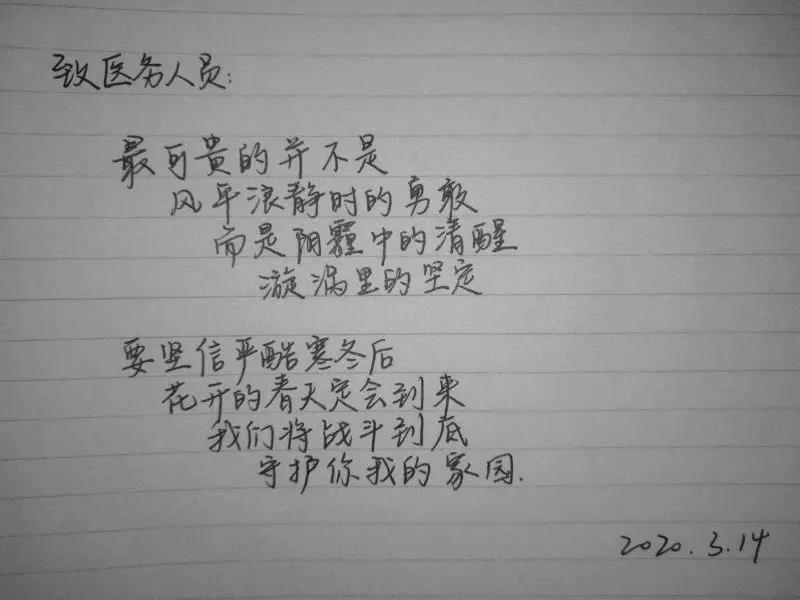 致医务人员:
最可贵的并不是
风平浪静时的勇敢
而是阴霾中的清醒
漩涡里的坚定
要坚信严酷寒冬后
花开的春天定会到来
我们将战斗到底
守护你我的家园.
2020.3.14